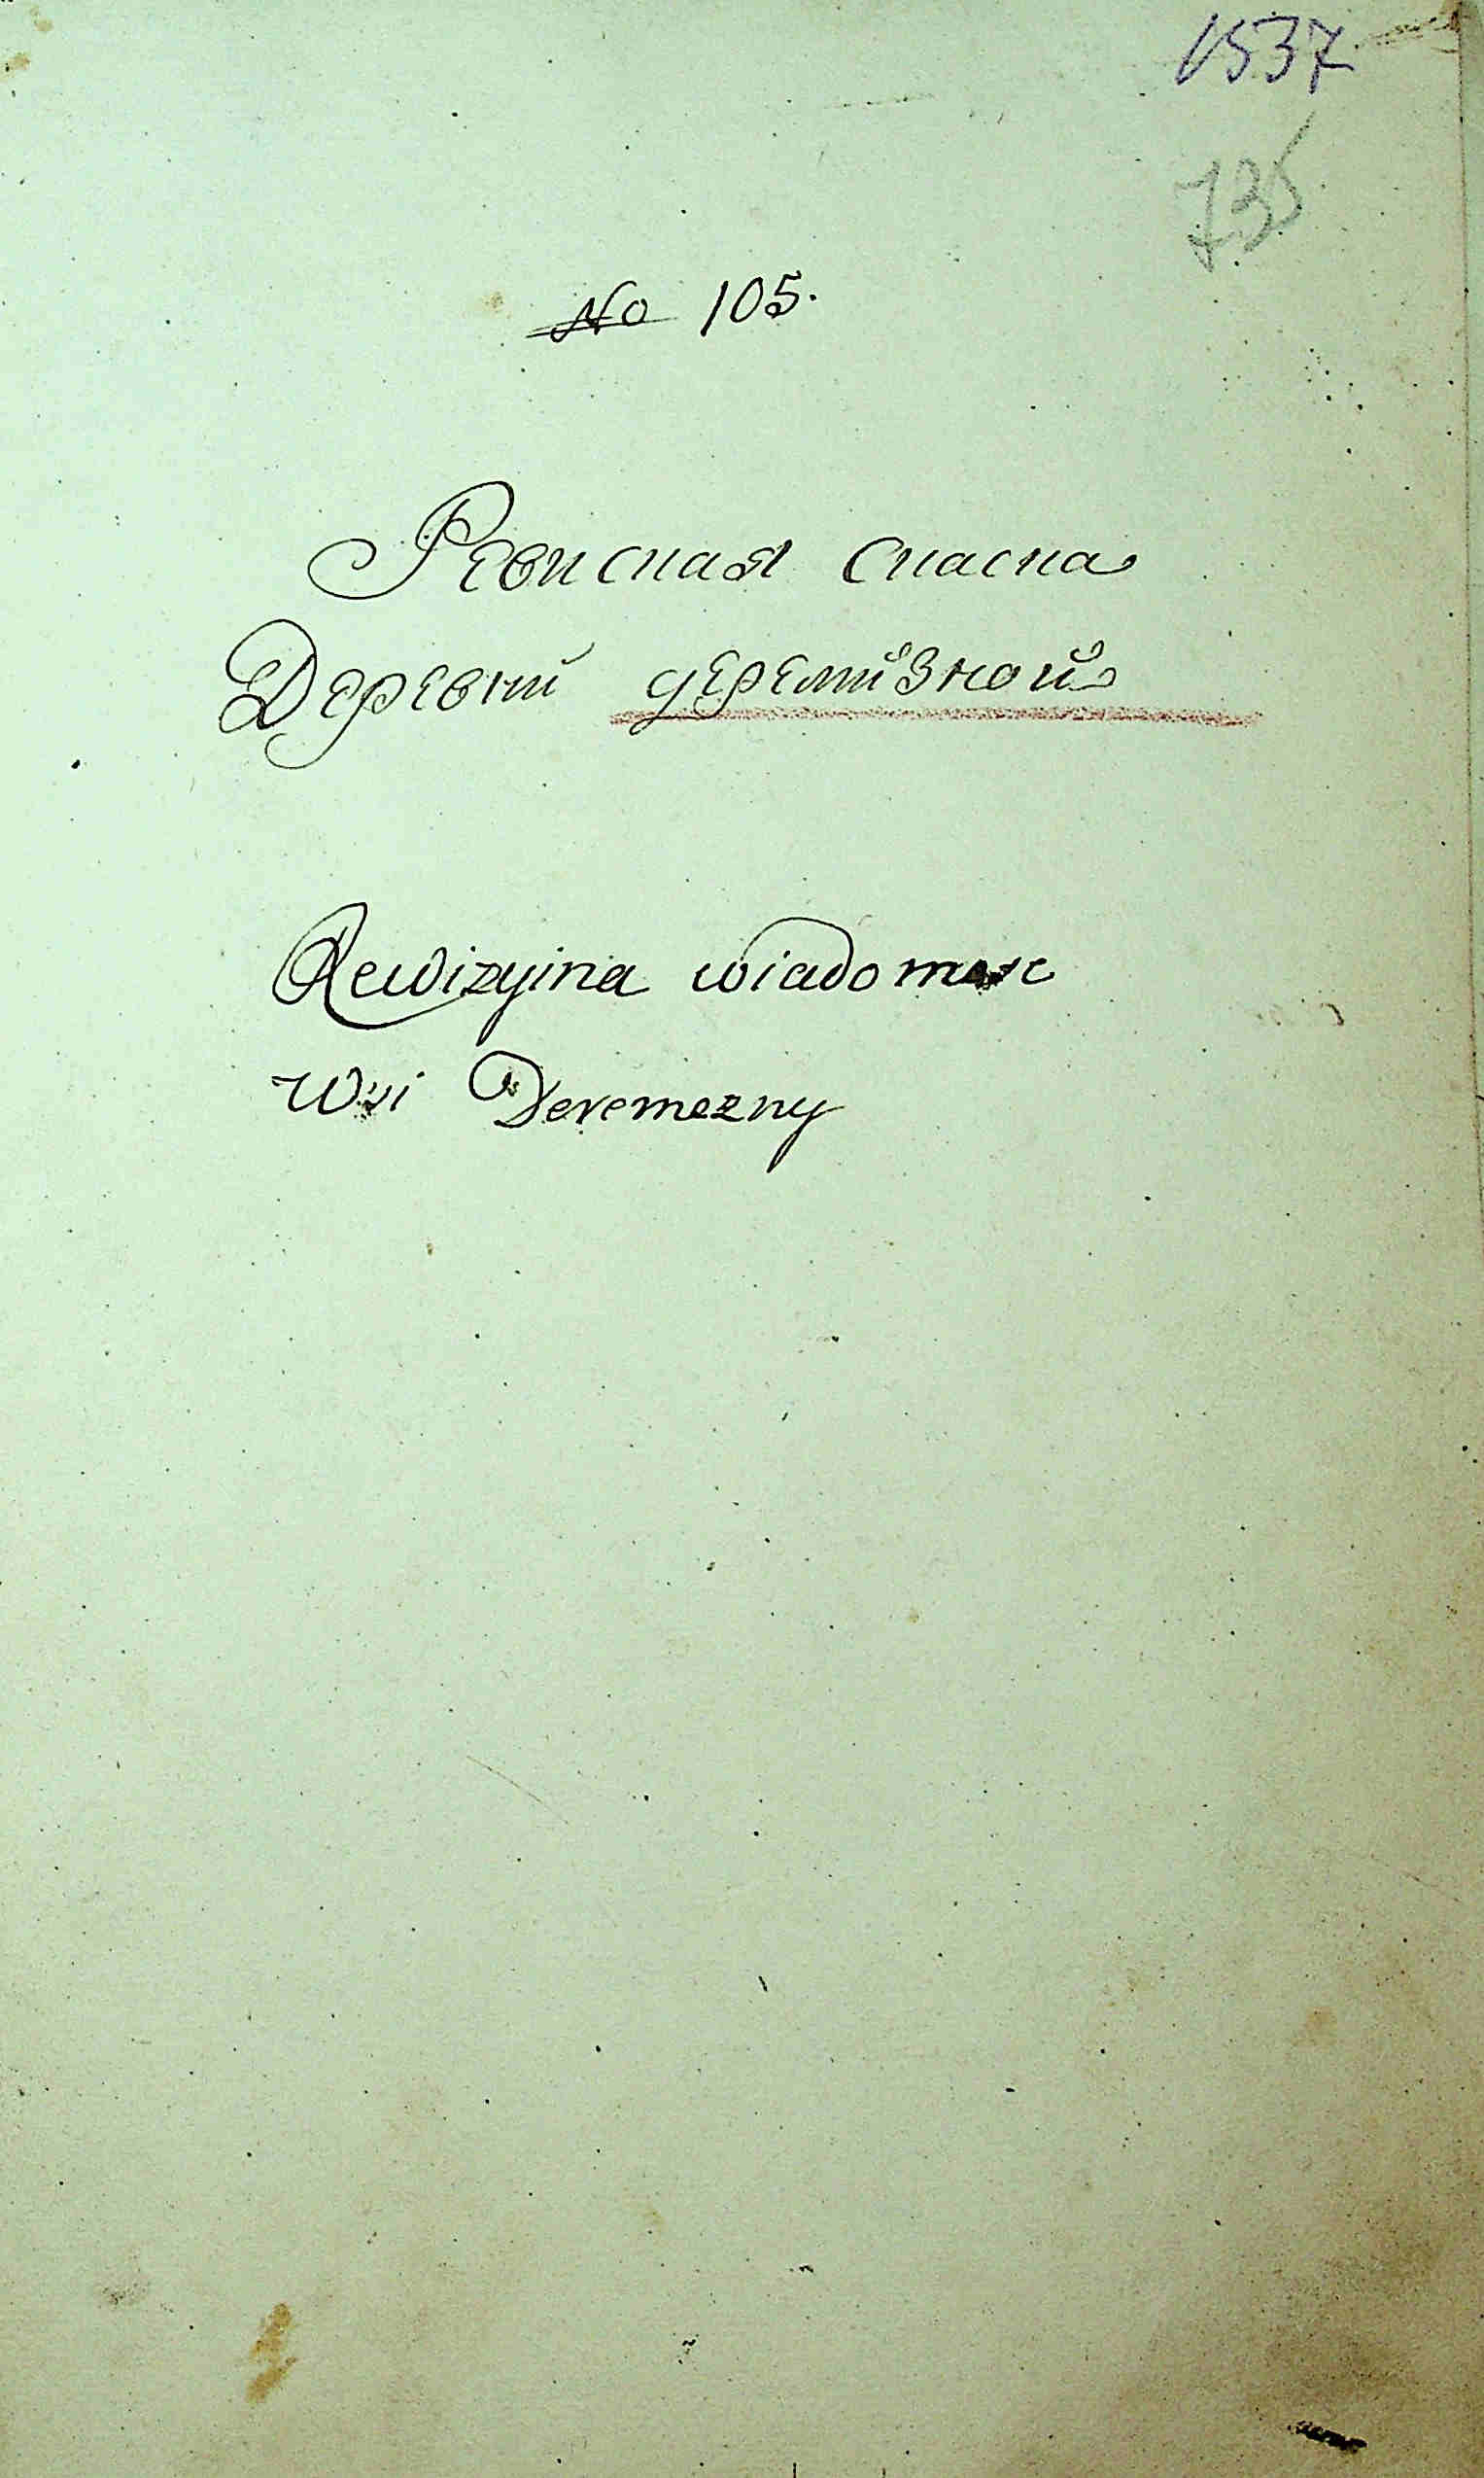 1537
735
No 105.
Ревиская скаска
Деревни деремизной
Rewizyina wiadomosc
Wsi Deremezny